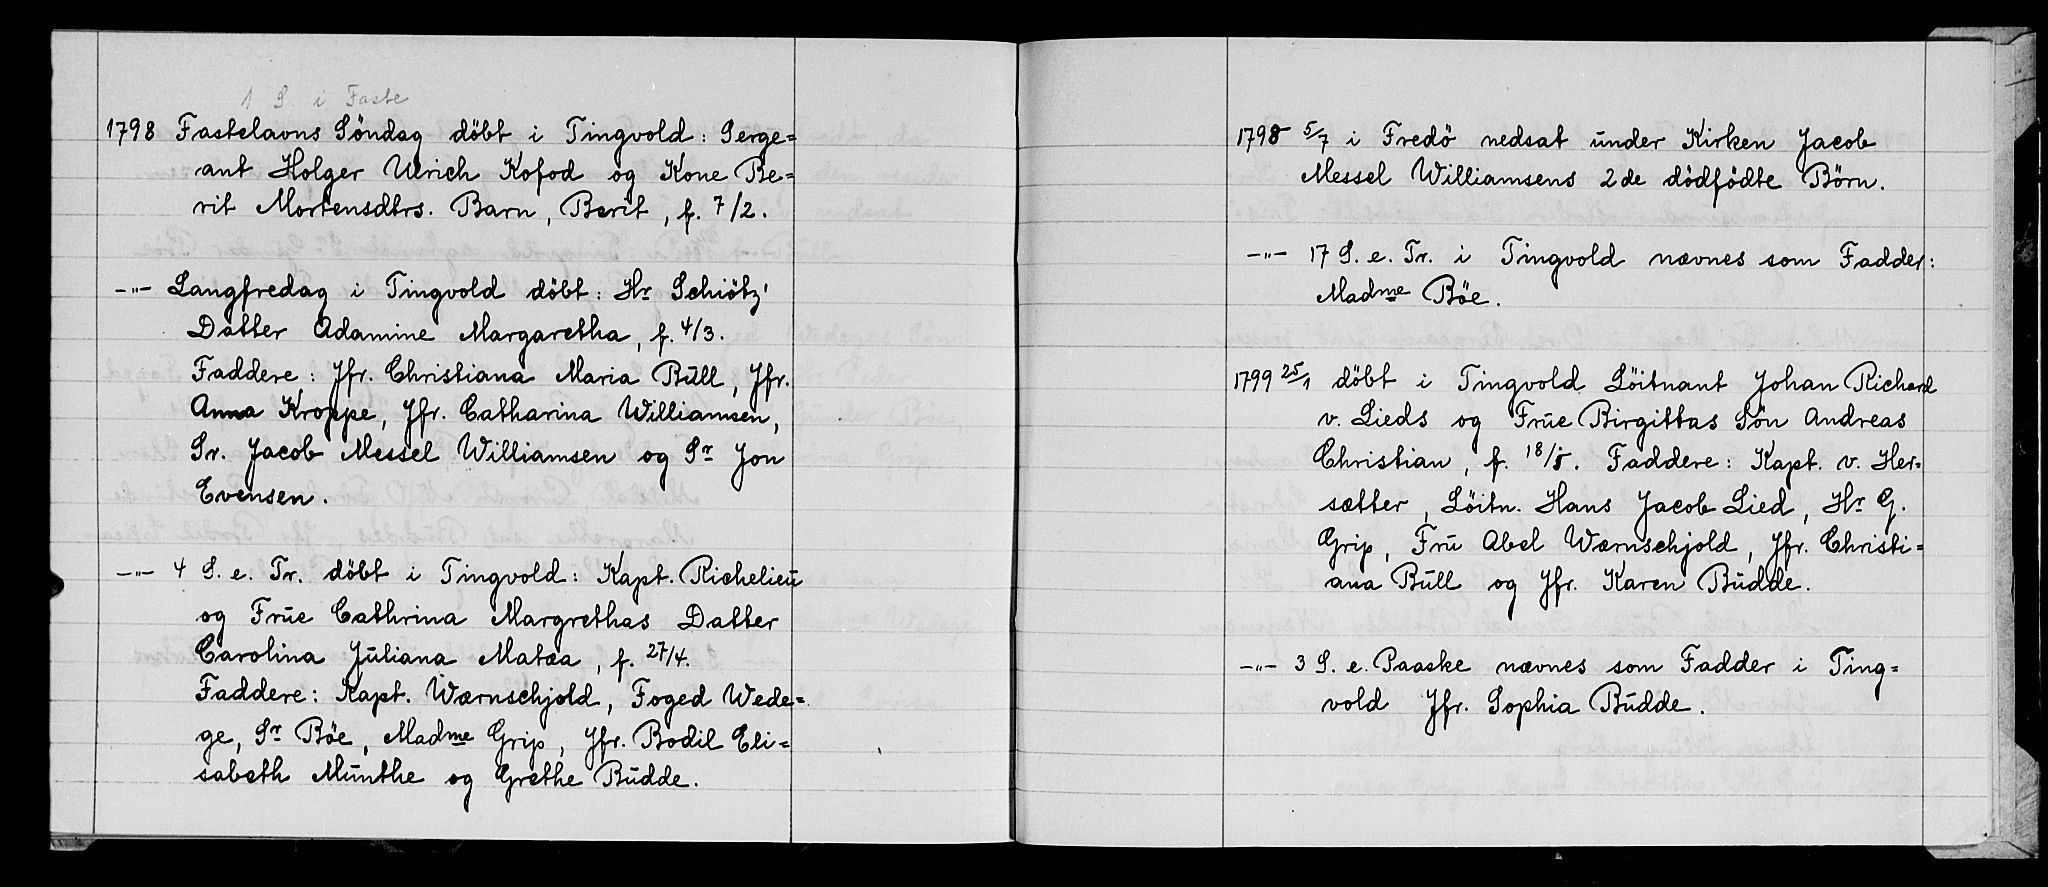 1 S. i Faste
1798 Fastelavns Söndag döbt i Tingvold: Serge=
ant Holger Ulrich Kofod og Kone Be=
rit Mortensdtrs. Barn, Berit, f. 7/2.
-"- Langfredag i Tingvold döbt: Hr Schiötz'
Datter Adamine Margaretha, f. 4/3.
Faddere: Jfr. Christiana Maria Bull, Jfr.
Anna Kroppe, Jfr. Catharina Williamsen,
Sr. Jacob Messel Williamsen og Sr Jon
Evensen.
-"- 4 S. e. Tr. döbt i Tingvold: Kapt. Richelieu
og Frue Cathrina Margrethas Datter
Carolina Juliana Matæa, f. 27/4.
Faddere: Kapt. Wærnschjold, Foged Wede=
ge, Sr Böe, Madme Grip, Jfr. Bodil Eli=
sabeth Munthe og Grethe Budde.
1798 5/7 i Fredö nedsat under Kirken Jacob
Messel Williamsens 2de dödfödte Börn.
-"- 17 S. e. Tr. i Tingvold nævnes som Fadder:
Madme Böe.
1799 25/1 döbt i Tingvold Löitnant Johan Richard
v. Lieds og Frue Birgittas Sön Andreas
Christian, f. 18/1. Faddere: Kapt. v. Her=
sætter, Löitn. Hans Jacob Lied, Hr G.
Grip, Fru Abel Wærnschjold, Jfr. Christi=
ana Bull og Jfr. Karen Budde.
-"- 3 S. e. Paaske nævnes som Fadder i Ting=
vold Jfr. Sophia Budde.